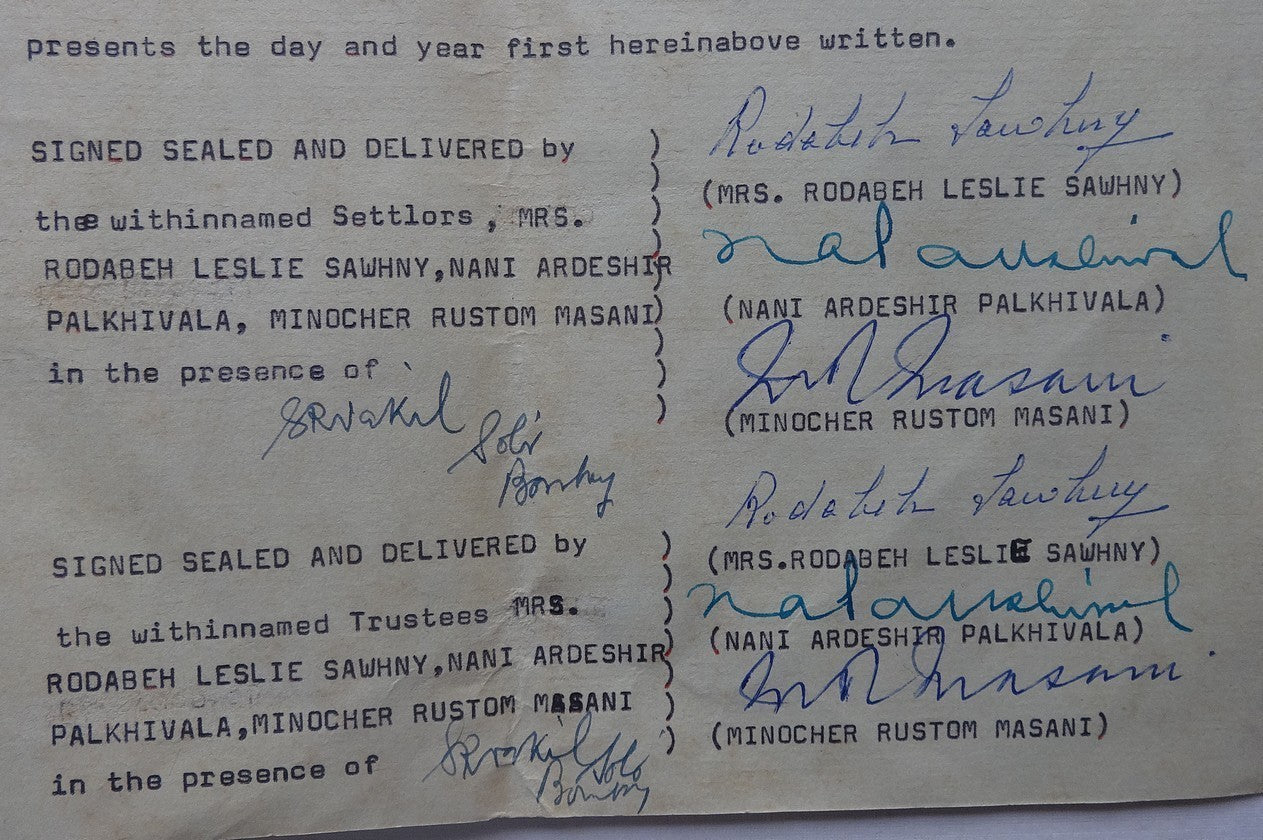 presents the day and year first hereinabove written.
Rodabeh Sawhny
SIGNED SEALED AND DELIVERED by )
(MRS. RODABEH LESLIE SAWHNY)
the withinnamed Settlors, MRS. )
RODABEH LESLIE SAWHNY,NANI ARDESHIR
(NANI ARDESHIR PALKHIVALA)
PALKHIVALA, MINOCHER RUSTOM MASANI)
M R Masani
in the presence of )
(MINOCHER RUSTOM MASANI)
SRVakil
Bombay
Rodabeh Sawhny
SIGNED SEALED AND DELIVERED by )
(MRS.RODABEH LESLIE SAWHNY)
the withinnamed Trustees MRS. )
(NANI ARDESHIR PALKHIVALA)
RODABEH LESLIE SAWHNY,NANI ARDESHIR)
M R Masani
PALKHIVALA,MINOCHER RUSTOM MASANI )
(MINOCHER RUSTOM MASANI)
in the presence of
SRVakil
Bombay